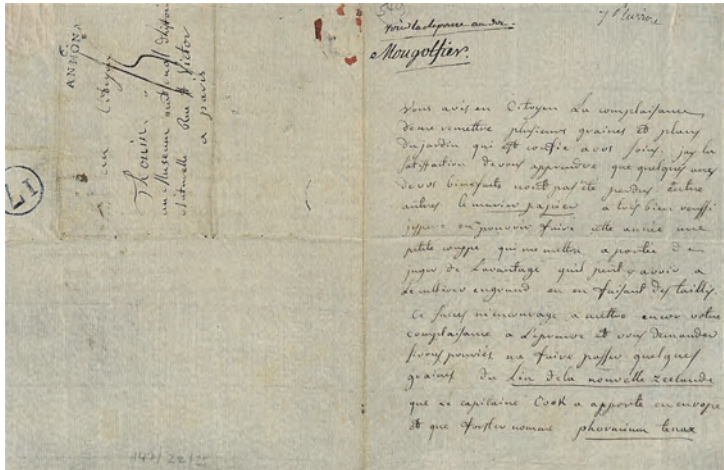 ANNONA
au Citoyen
Thouin
au Museum
naturelle Rue St Victor
a paris
17
voir la reponse au dos.
Mongolfier.
7 Pluviose
Vous avés eu Citoyen La complaisance
de me remettre plusieurs graines et plans
du jardin qui est confie a vos soins. jay la
satisfaction de vous apprendre que quelques unes
de vos bienfaits nont pas été perdus entre
autres le murier papier a tres bien reussi
jespere en pouvoir faire cette année une
petite couppe qui me mettra a portée d en
juger de Lavantage quil peut y avoir a
Le cultiver en grand ou en faisant des taillis.
Ce succes m'encourage a mettre encor votre
complaisance a L'epreuve et vous demander
si vous pouviés me faire passer quelques
graines du Lin de la nouvelle zeelande
que Le capitaine Cook a apporte en europe
et que forster nomme phormium tenax